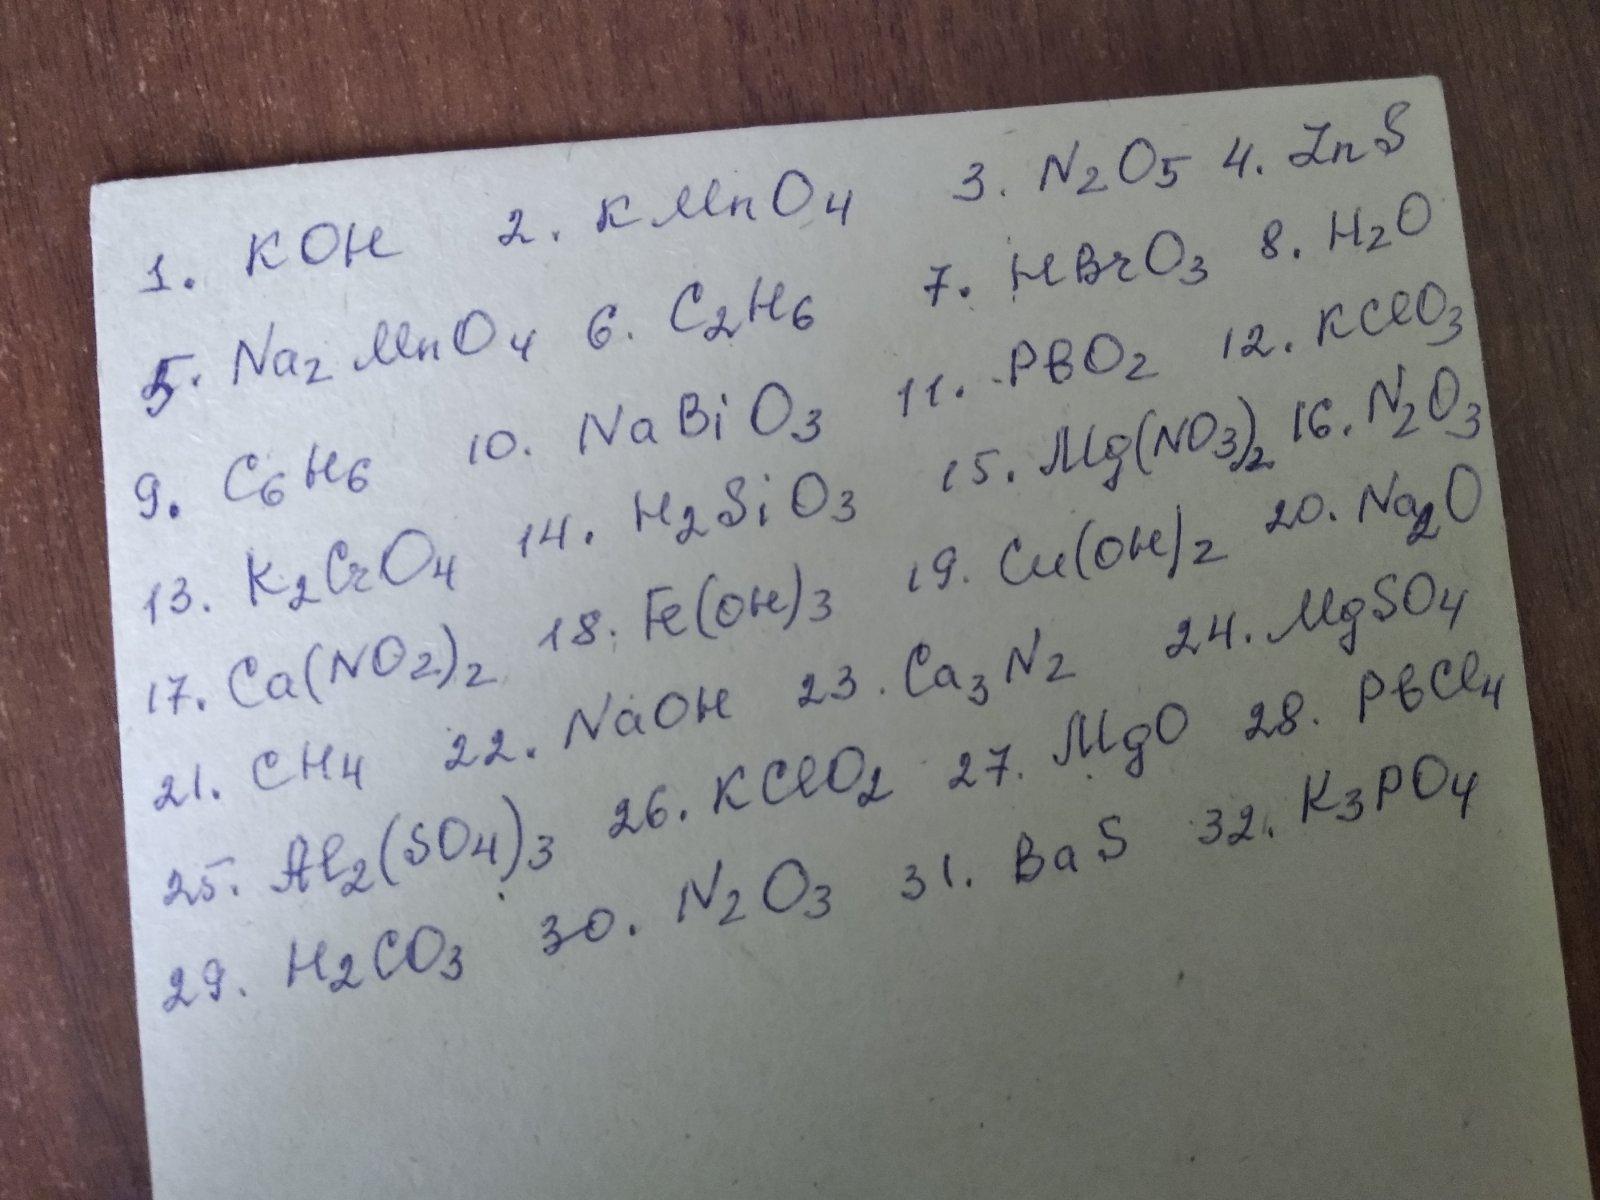 1. KOH 2. KMnO4 3. N2O5 4. ZnS
5. Na2MnO4 6. C2H6 7. HBrO3 8. H2O
9. C6H6 10. NaBiO3 11. PbO2 12. KClO3
13. K2CrO4 14. H2SiO3 15. Mg(NO3)2 16. N2O3
17. Ca(NO2)2 18. Fe(OH)3 19. Cu(OH)2 20. Na2O
21. CH4 22. NaOH 23. Ca3N2 24. MgSO4
25. Al2(SO4)3 26. KClO2 27. MgO 28. PbCl4
29. H2CO3 30. N2O3 31. BaS 32. K3PO4